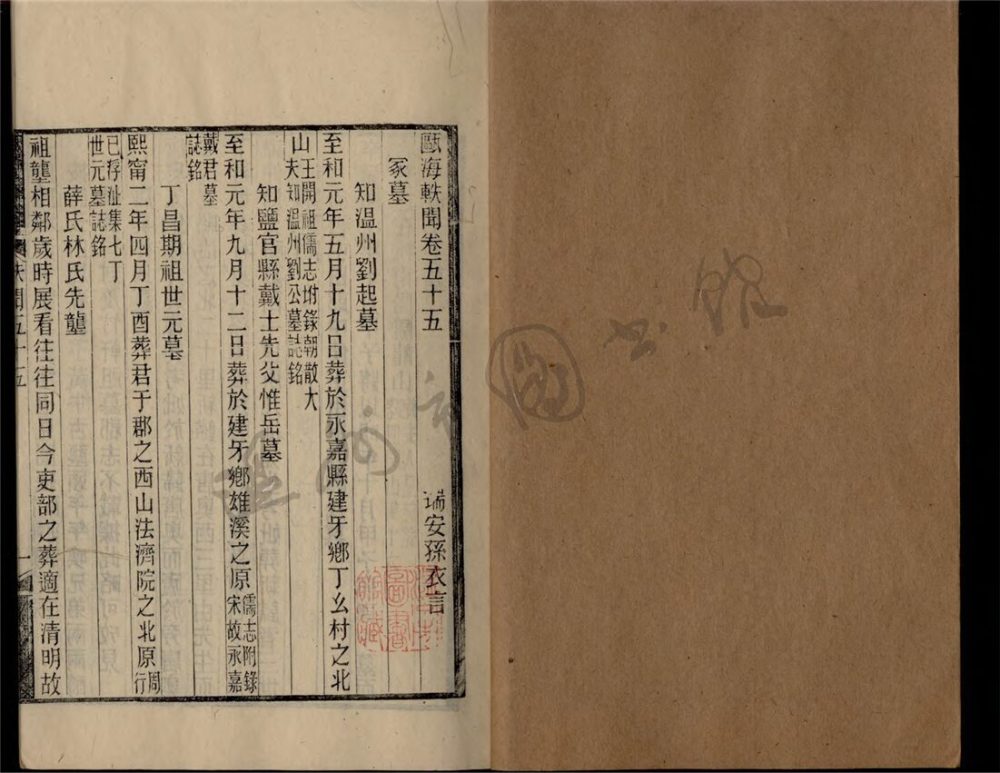 甌海軼聞卷五十五
瑞安孫衣言
冢墓
知溫州劉起墓
至和元年五月十九日葬於永嘉縣建牙鄉丁幺村之北
山王開祖儒志坿錄朝散大
夫知溫州劉公墓誌銘
知鹽官縣戴士先父惟岳墓
至和元年九月十二日葬於建牙鄉雄溪之原儒志附錄
宋故永嘉
戴君墓
誌銘
丁昌期祖世元墓
熙甯二年四月丁酉葬君于郡之西山法濟院之北原周
行
已浮沚集七丁
世元墓誌銘
薛氏林氏先壟
祖壟相鄰歲時展看往往同日今吏部之葬適在清明故
一